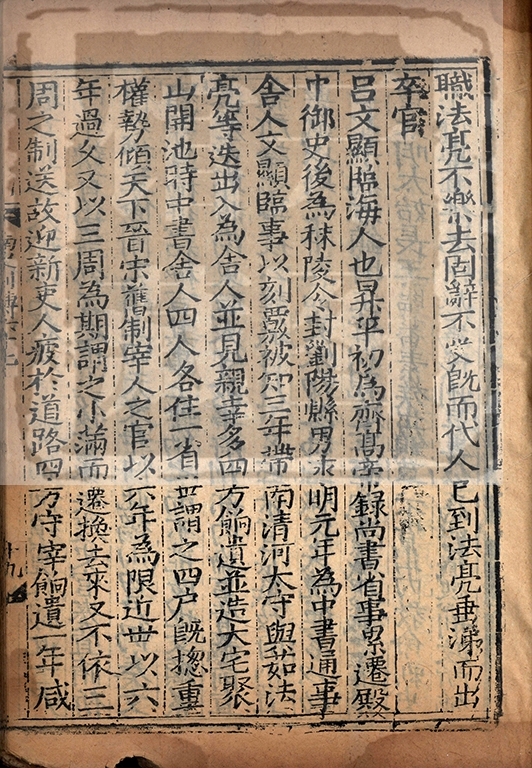 職法亮不樂去固辭不受既而代人已到法亮垂涕而出
卒官
呂文顯臨海人也昇平初為齊高帝録尚書省事累遷殿
中御史後為秣陵令封劉陽縣男永明元年為中書通事
舍人文顯臨事以刻覈被知三年帶南清河太守與茹法
亮等迭出入為舎人並見親幸多四方餉遺並造大宅聚
山開池時中書舎人四人各住一省世謂之四户既揔重
權勢傾天下晉宋舊制宰人之官以六年為限近世以六
年過久又以三周為期謂之小滿而遷換去來又不依三
周之制送故迎新吏人疲於道路四方守宰餉遺一年咸
十九